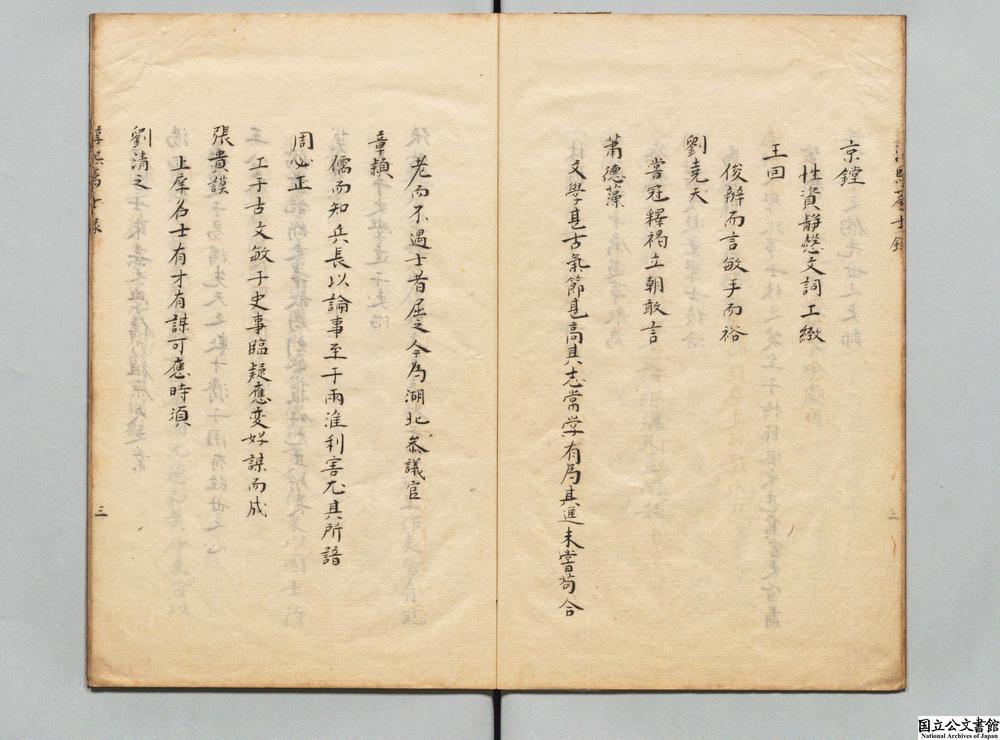 京鏜
性資靜慤文詞工緻
王回
俊辯而言敏手而裕
劉堯夫
嘗冠釋褐立朝敢言
蕭德藻
文學甚古氣節甚高其志常学有為其進未嘗苟合
老而不遇士者屈之今為湖北叅議官
章頴
儒而知兵長以論事至于兩淮利害尤其所諳
周必正
工于古文敏于史事臨疑應変好謀而成
張貴謨
上庠名士有才有謀可應時須
劉清之
淳熙薦士録
三
国立公文書館
National Archives of Japan